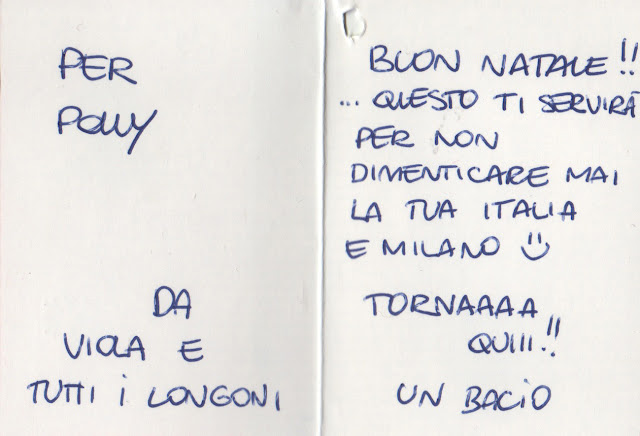 PER
POLLY
DA
VIOLA E
TUTTI i LONGONI
BUON NATALE!!
... QUESTO TI SERVIRÀ
PER NON
DIMENTICARE MAI
LA TUA ITALIA
E MILANO ☺
TORNAAAA
QUIII!!
UN BACIO